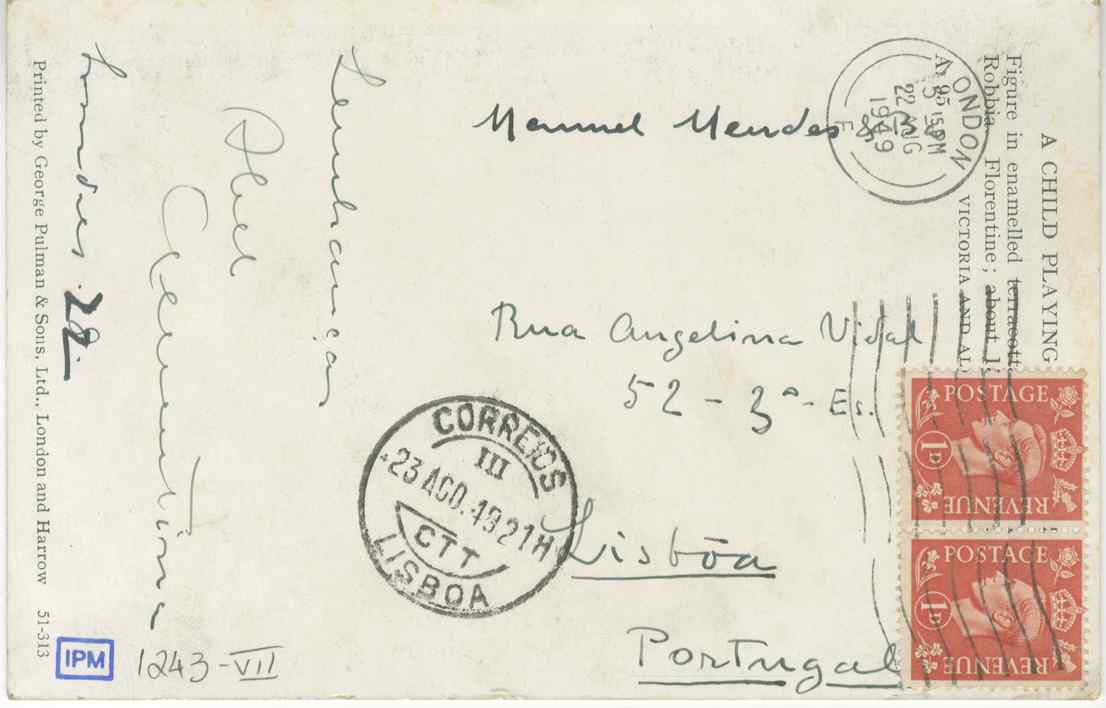 A CHILD PLAYING
Figure in enamelled terracotta
Robbia. Florentine; about 1
VICTORIA AND AL
LONDON
5 15 PM
22 AUG
1949
E
Manuel Mendes
Rua Angelina Vidal
52 - 3º - Es.
Lisbôa
Portugal
POSTAGE
1D
REVENUE
POSTAGE
1D
REVENUE
CORREIOS
III
23 AGO. 49 21H
CTT
LISBOA
Lembranças
Abel
Clementina
Londres. 22.
Printed by George Pulman & Sons, Ltd., London and Harrow 51-313
IPM
1243-VII